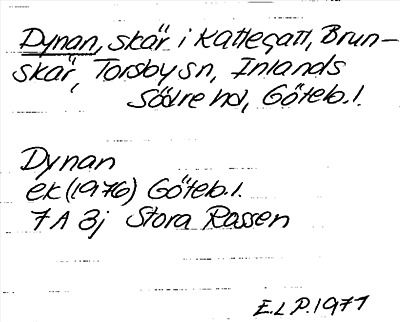 Dynan, skär i Kattegatt, Brun-
skär, Torsby sn, Inlands
Södre hd, Göteb. l.
Dynan
ek (1976) Göteb. l.
7 A 3j Stora Rossen
E.L.P. 1977